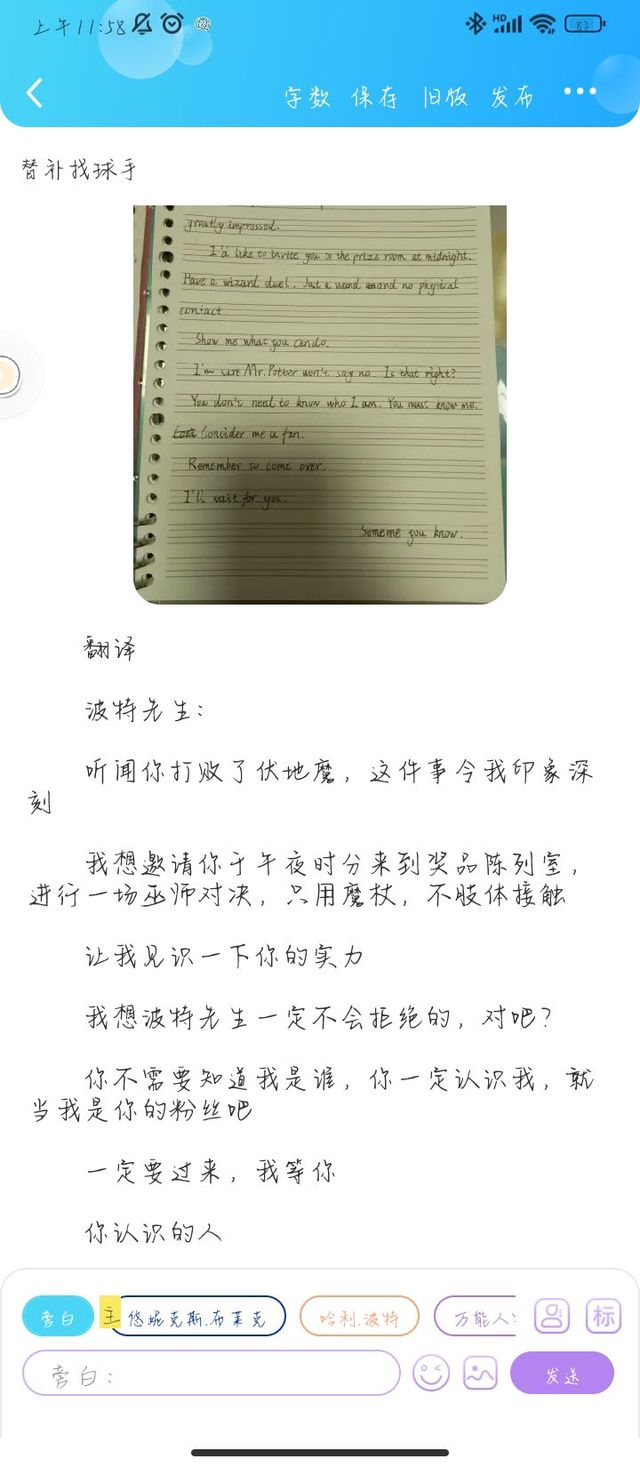 上午11:58
HD
82
字数 保存 旧饭 发布
替补找球手
greatly impressed.
I'd like to invite you to the prize room at midnight.
Have a wizard duel. Just a wand and no physical
contact
Show me what you can do.
I'm sure Mr. Potter won't say no. Is that right?
You don't need to know who I am. You must know me.
Consider me a fan.
Remember to come over.
I'll wait for you.
Someone you know.
翻译
波特先生：
听闻你打败了伏地魔，这件事令我印象深
刻
我想邀请你于午夜时分来到奖品陈列室，
进行一场巫师对决，只用魔杖，不肢体接触
让我见识一下你的实力
我想波特先生一定不会拒绝的，对吧？
你不需要知道我是谁，你一定认识我，就
当我是你的粉丝吧
一定要过来，我等你
你认识的人
旁白 主 悠妮克斯.布莱克 哈利.波特 万能人 标
旁白： 发送